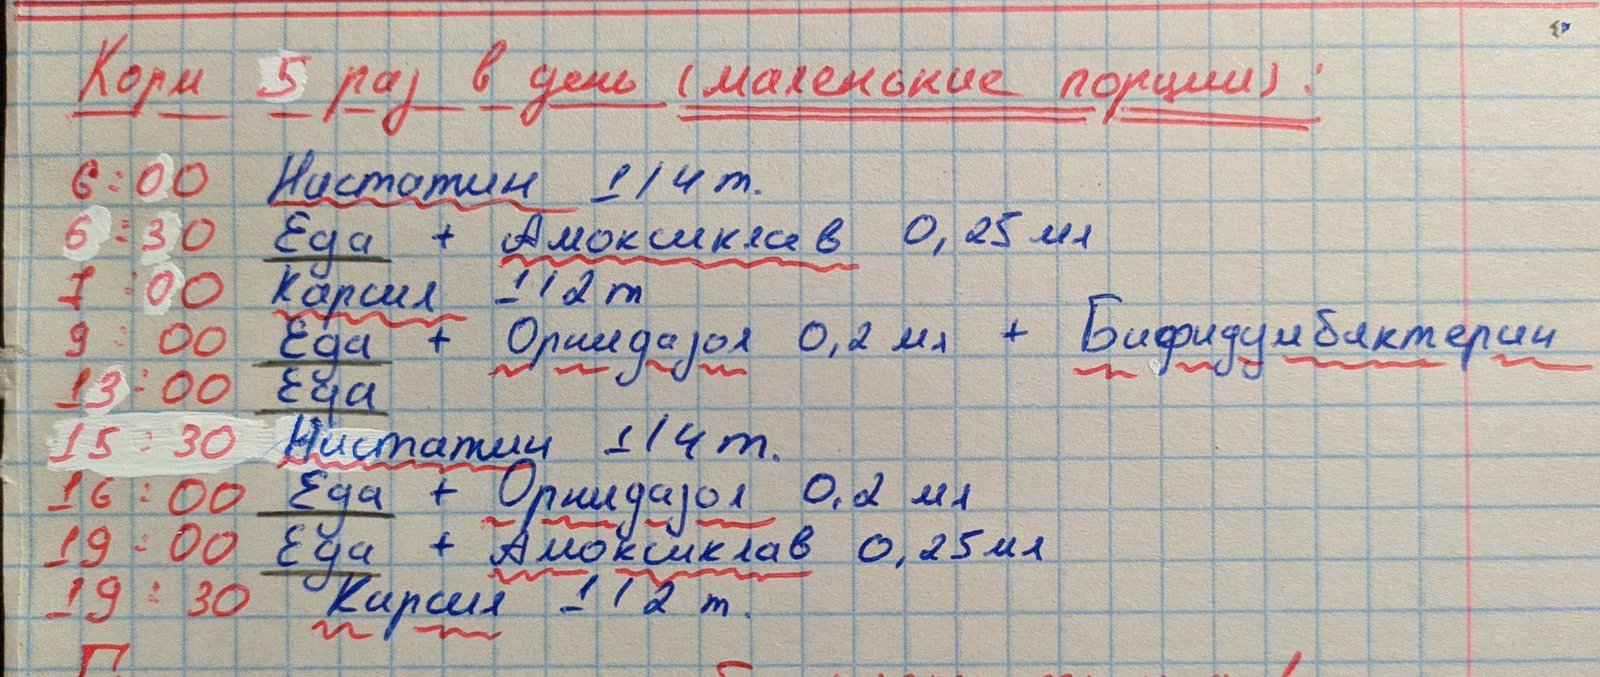 Корм 5 раз в день (маленькие порции):
6:00 Нистатин 1/4 т.
6:30 Еда + Амоксиклав 0,25 мл
7:00 Карсил 1/2 т
9:00 Еда + Орнидазол 0,2 мл + Бифидумбактерин
13:00 Еда
15:30 Нистатин 1/4 т.
16:00 Еда + Орнидазол 0,2 мл
19:00 Еда + Амоксиклав 0,25 мл
19:30 Карсил 1/2 т.